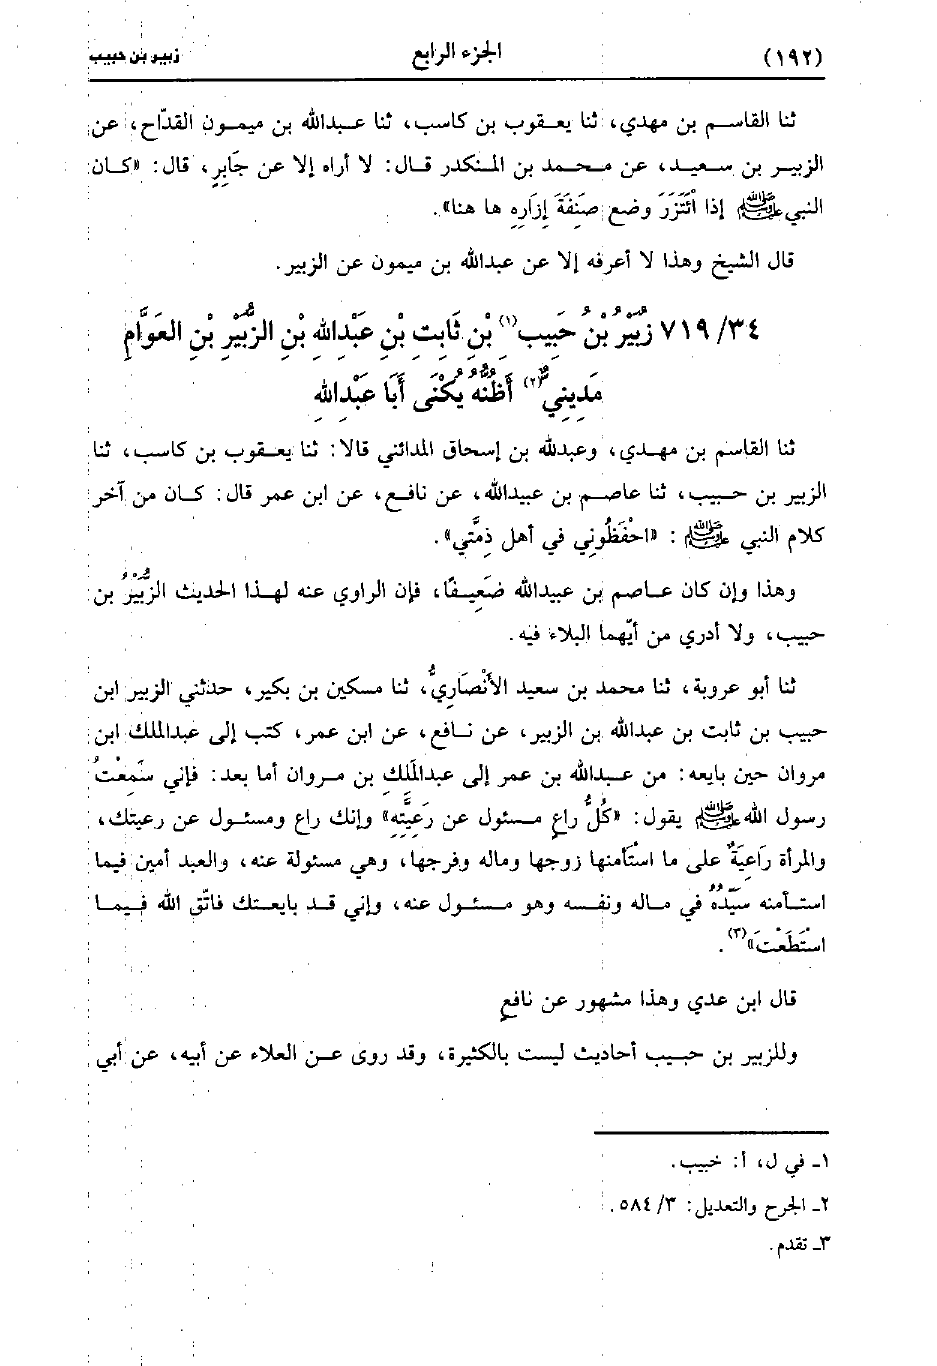 (١٩٢) الجزء الرابع زبير بن حبيب
ثنا القاسم بن مهدي، ثنا يعقوب بن كاسب، ثنا عبدالله بن ميمون القدّاح، عن
الزبير بن سعيد، عن محمد بن المنكدر قال: لا أراه إلا عن جَابِرٍ، قال: «كان
النبي ﷺ إذا ائْتَزَرَ وضع صَنِفَةَ إِزَارِهِ ها هنا».
قال الشيخ وهذا لا أعرفه إلا عن عبدالله بن ميمون عن الزبير.
٧١٩/٣٤ زُبَيْرُ بْنُ حَبِيب(١) بْنِ ثَابِت بْنِ عَبْدِاللهِ بْنِ الزُّبَيْرِ بْنِ العَوَّامِ
مَدِينيٌّ(٢) أَظُنُّهُ يُكْنَى أَبَا عَبْدِاللهِ
ثنا القاسم بن مهدي، وعبدالله بن إسحاق المدائني قالا: ثنا يعقوب بن كاسب، ثنا
الزبير بن حبيب، ثنا عاصم بن عبيدالله، عن نافع، عن ابن عمر قال: كان من آخر
كلام النبي ﷺ : «احْفَظُوني في أهل ذِمَّتي».
وهذا وإن كان عاصم بن عبيدالله ضَعِيفًا، فإن الراوي عنه لهذا الحديث الزُّبَيْرُ بن
حبيب، ولا أدري من أيّهما البلاء فيه.
ثنا أبو عروبة، ثنا محمد بن سعيد الأَنْصَارِيُّ، ثنا مسكين بن بكير، حدثني الزبير ابن
حبيب بن ثابت بن عبدالله بن الزبير، عن نافع، عن ابن عمر، كتب إلى عبدالملك ابن
مروان حين بايعه: من عبدالله بن عمر إلى عبدالمَلِكِ بن مروان أما بعد: فإني سَمِعْتُ
رسول الله ﷺ يقول: «كُلُّ راعٍ مسئول عن رَعِيَّتِهِ» وإنك راع ومسئول عن رعيتك،
والمرأة رَاعِيَةٌ على ما استأمنها زوجها وماله وفرجها، وهي مسئولة عنه، والعبد أمين فيما
استأمنه سَيِّدُهُ في ماله ونفسه وهو مسئول عنه، وإني قد بايعتك فاتّق الله فيما
اسْتَطَعْتَ»(٣).
قال ابن عدي وهذا مشهور عن نافعٍ
وللزبير بن حبيب أحاديث ليست بالكثيرة، وقد روى عن العلاء عن أبيه، عن أبي
١ـ في ل، أ: خبيب.
٢ـ الجرح والتعديل: ٣/ ٥٨٤.
٣ـ تقدم.